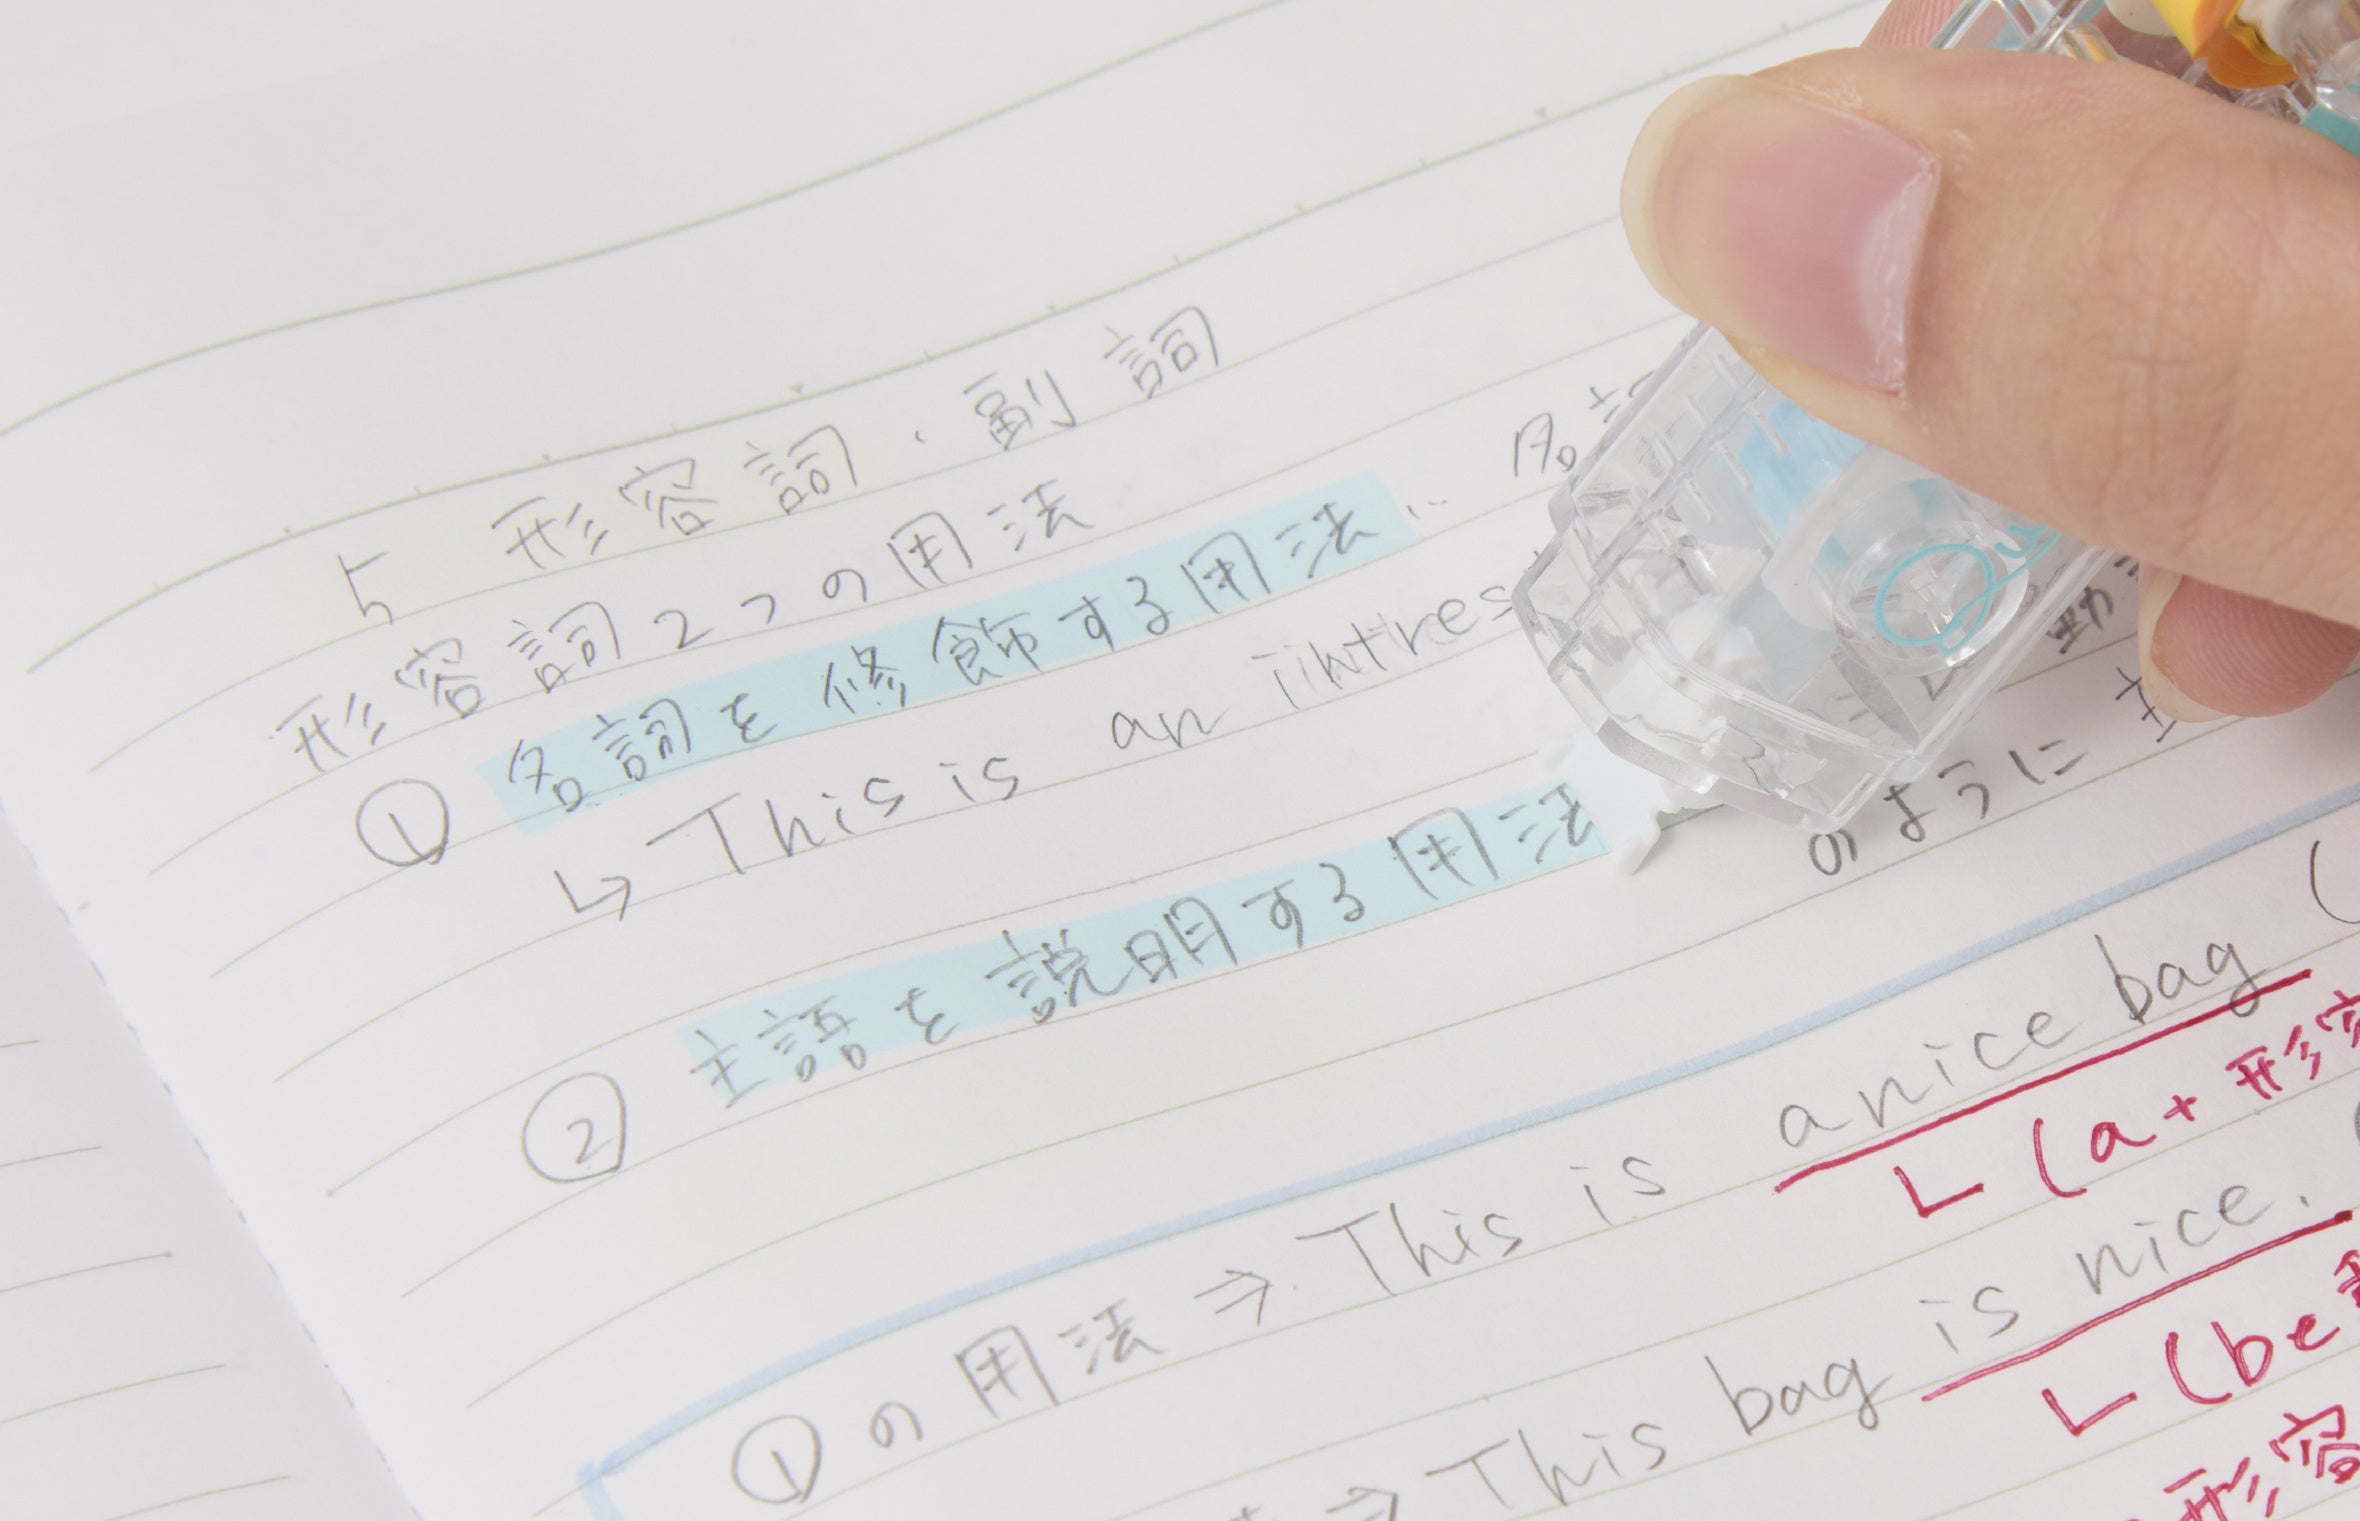 5 形容詞・副詞
形容詞2つの用法
① 名詞を修飾する用法… 名詞
↳ This is an iintres
② 主語を説明する用法
のように
①の用法 ⇒ This is a nice bag (
└ (a + 形容
⇒ This bag is nice.
└ (be
形容